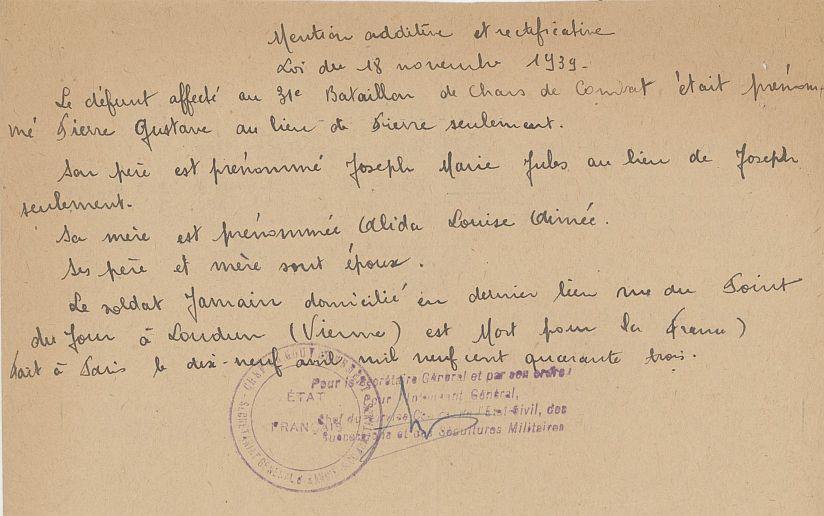 Mention additive et rectificative
Loi du 18 novembre 1939.
Le défunt affecté au 31e Bataillon de Chars de Combat était prénom-
mé Pierre Gustave au lieu de Pierre seulement.
Son père est prénommé Joseph Marie Jules au lieu de Joseph
seulement.
Sa mère est prénommée Alida Louise Aimée.
Ses père et mère sont époux.
Le soldat Jamain domicilié en dernier lieu rue du Point
du Jour à Loudun (Vienne) est Mort pour la France)
Fait à Paris le dix-neuf avril mil neuf cent quarante trois.
Pour le Secrétaire Général et par son ordre
Pour l'Intendant Général,
Chef du Service de l'Etat-Civil, des
Successions et des Sépultures Militaires
ÉTAT
FRANÇAIS